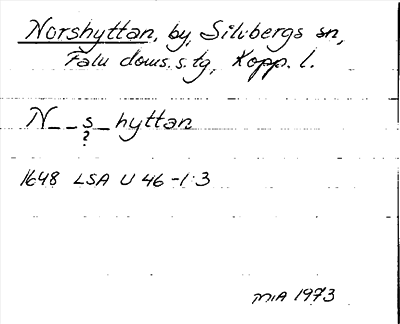 Norshyttan, by, Silvbergs sn,
Falu doms. s. tg, Kopp. l.
N _ _ s _ hyttan
?
1648 LSA U 46-1:3
MIA 1973